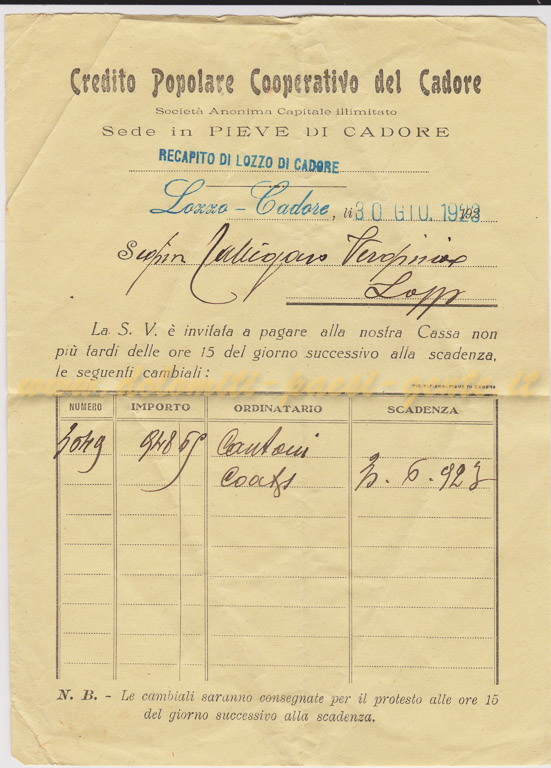 Credito Popolare Cooperativo del Cadore
Società Anonima Capitale illimitato
Sede in PIEVE DI CADORE
RECAPITO DI LOZZO DI CADORE
Lozzo - Cadore, li 30 GIU. 1923 192
La S. V. è invitata a pagare alla nostra Cassa non
più tardi delle ore 15 del giorno successivo alla scadenza,
le seguenti cambiali :
NUMERO IMPORTO ORDINATARIO SCADENZA
948 65 Cantoni
Coats 6 . 923
N. B. - Le cambiali saranno consegnate per il protesto alle ore 15
del giorno successivo alla scadenza.